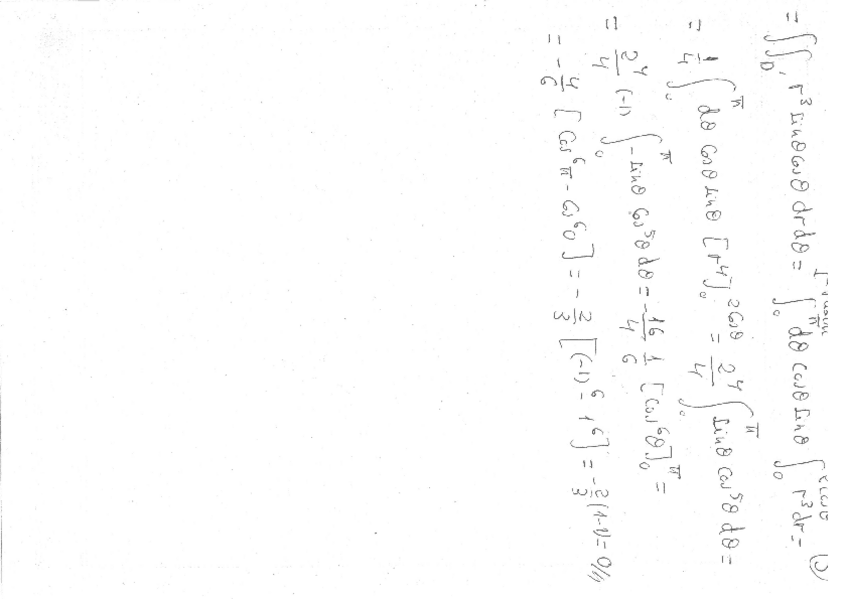 = ∫∫_D' r³ sinθ cosθ dr dθ = ∫₀^π dθ cosθ sinθ ∫₀^{2cosθ} r³ dr =
= 1/4 ∫₀^π dθ cosθ sinθ [r⁴]₀^{2cosθ} = 2⁴/4 ∫₀^π sinθ cos⁵θ dθ =
= 2⁴/4 (-1) ∫₀^π -sinθ cos⁵θ dθ = -16/4 1/6 [cos⁶θ]₀^π =
= -4/6 [cos⁶π - cos⁶0] = -2/3 [(-1)⁶ - 1⁶] = -2/3 (1-1) = 0//